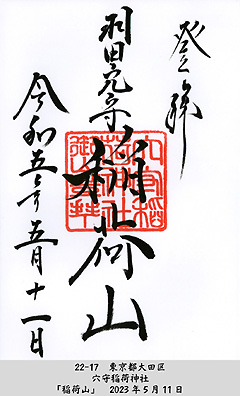 登拝
羽田穴守
稲荷山
令和五年五月十一日
22-17　東京都大田区
穴守稲荷神社
「稲荷山」　2023年5月11日